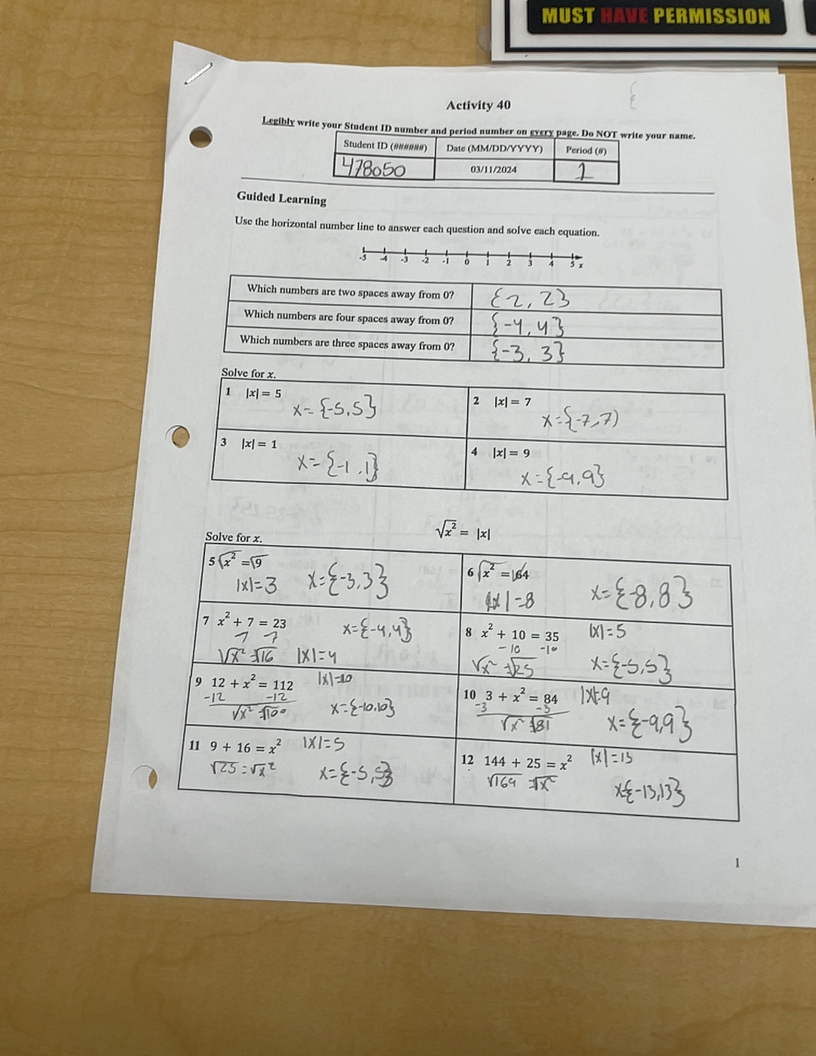 MUST HAVE PERMISSION
Activity 40
Legibly write your Student ID number and period number on every page. Do NOT write your name.
Student ID (######) Date (MM/DD/YYYY) Period (#)
478050 03/11/2024 1
Guided Learning
Use the horizontal number line to answer each question and solve each equation.
-5 -4 -3 -2 -1 0 1 2 3 4 5 x
Which numbers are two spaces away from 0? {2, 2}
Which numbers are four spaces away from 0? {-4, 4}
Which numbers are three spaces away from 0? {-3, 3}
Solve for x.
1 |x| = 5 x= {-5,5}
2 |x| = 7 x={-7,7)
3 |x| = 1 x= {-1,1}
4 |x| = 9 x={-9,9}
√x² = |x|
Solve for x.
5 √x² = √9
|x|= 3 x={-3,3}
6 √x² = √64
|x|=8 x={-8,8}
7 x² + 7 = 23 x={-4,4}
-7 -7
√x² = √16 |x|=4
8 x² + 10 = 35 |x|=5
-10 -10
√x² = √25 x={-5,5}
9 12 + x² = 112 |x|=10
-12 -12
√x² = √100 x={-10,10}
10 3 + x² = 84 |x|=9
-3 -3
√x² = √81 x={-9,9}
11 9 + 16 = x² |x|=5
√25 = √x² x={-5,5}
12 144 + 25 = x² |x|=13
√169 = √x² x={-13,13}
1